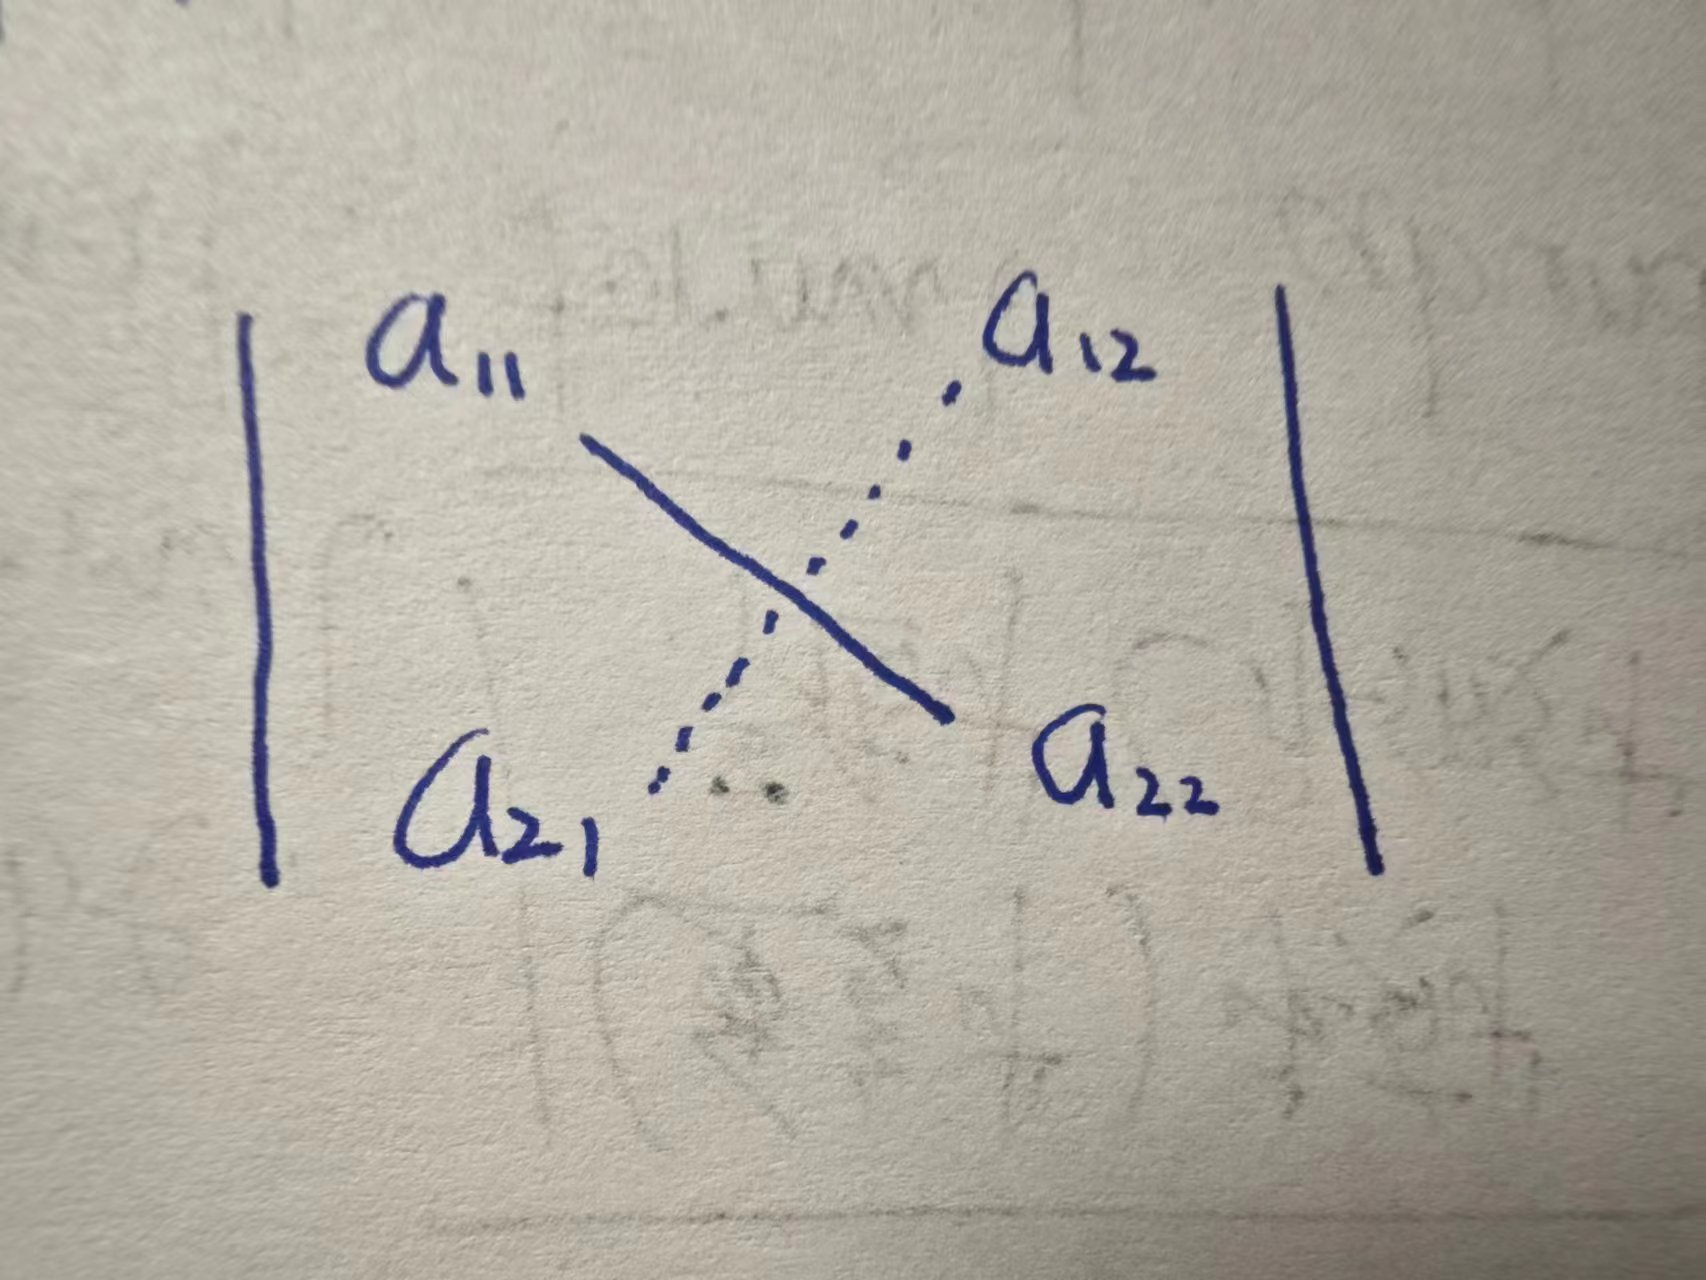 | a₁₁ a₁₂ |
| a₂₁ a₂₂ |